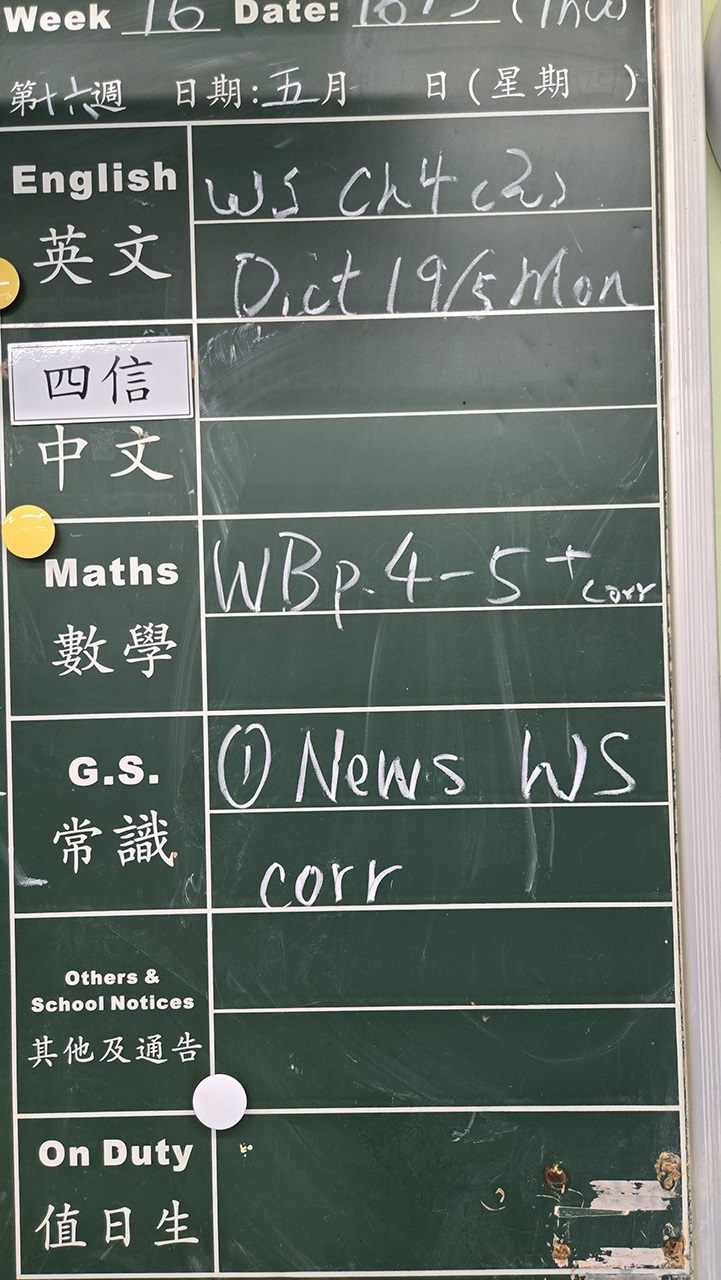 Week 16 Date: 16/5 (Thu)
第十六週 日期:五月 日(星期 )
English
WS Ch4 (2)
英文
Dict 19/5 Mon
四信
中文
Maths
WBp.4-5+corr
數學
G.S.
① News WS
常識
corr
Others &
School Notices
其他及通告
On Duty
值日生